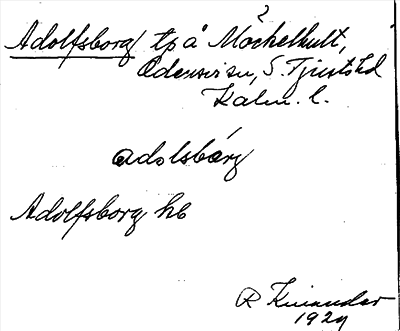 Adolfsborg tp å Möckelhult,
Odensvi sn, S. Tjusts hd
Kalm. l.
adolsbårg
Adolfsborg hb
R Kinander
1929